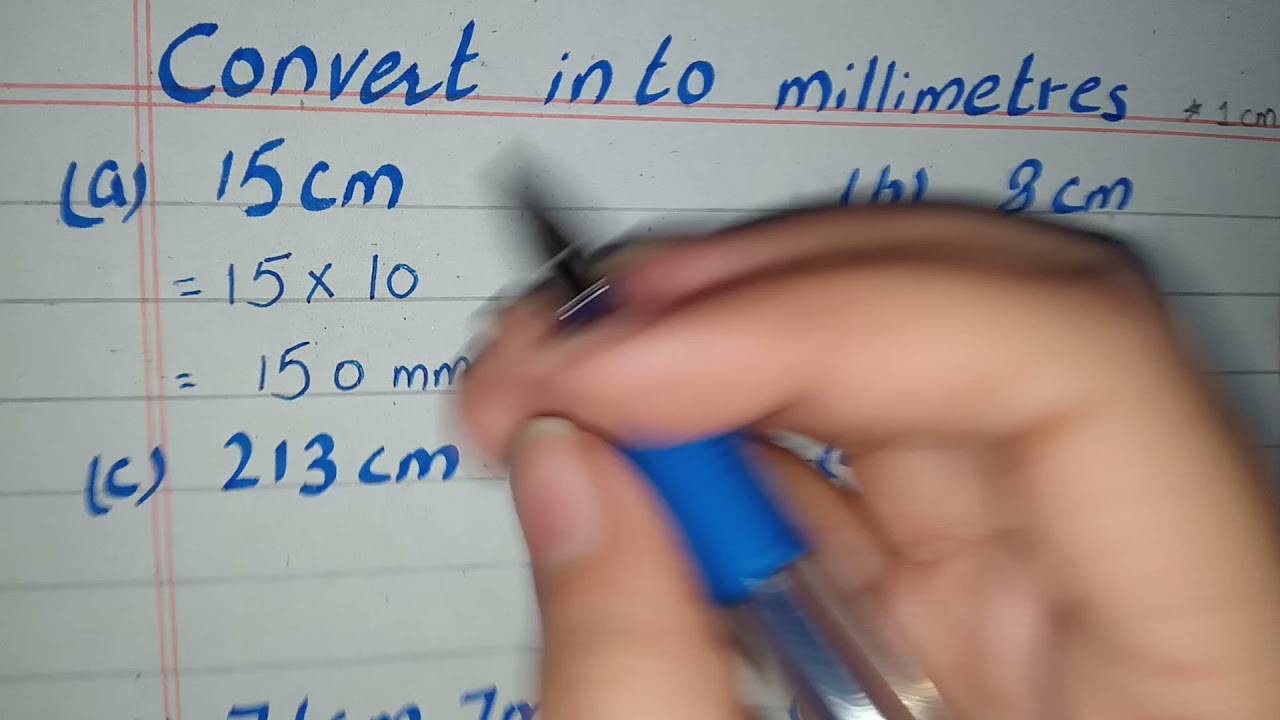 Convert into millimetres * 1cm
(a) 15 cm
(b) 8 cm
= 15 × 10
= 150 mm
(c) 213 cm